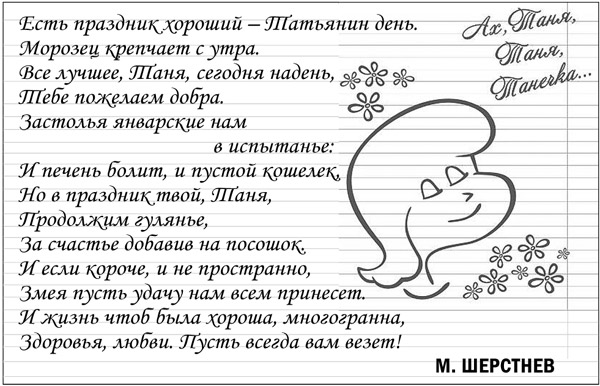 Есть праздник хороший – Татьянин день.
Морозец крепчает с утра.
Все лучшее, Таня, сегодня надень,
Тебе пожелаем добра.
Застолья январские нам
в испытанье:
И печень болит, и пустой кошелек,
Но в праздник твой, Таня,
Продолжим гулянье,
За счастье добавив на посошок.
И если короче, и не пространно,
Змея пусть удачу нам всем принесет.
И жизнь чтоб была хороша, многогранна,
Здоровья, любви. Пусть всегда вам везет!
Ах, Таня,
Таня,
Танечка...
М. ШЕРСТНЕВ